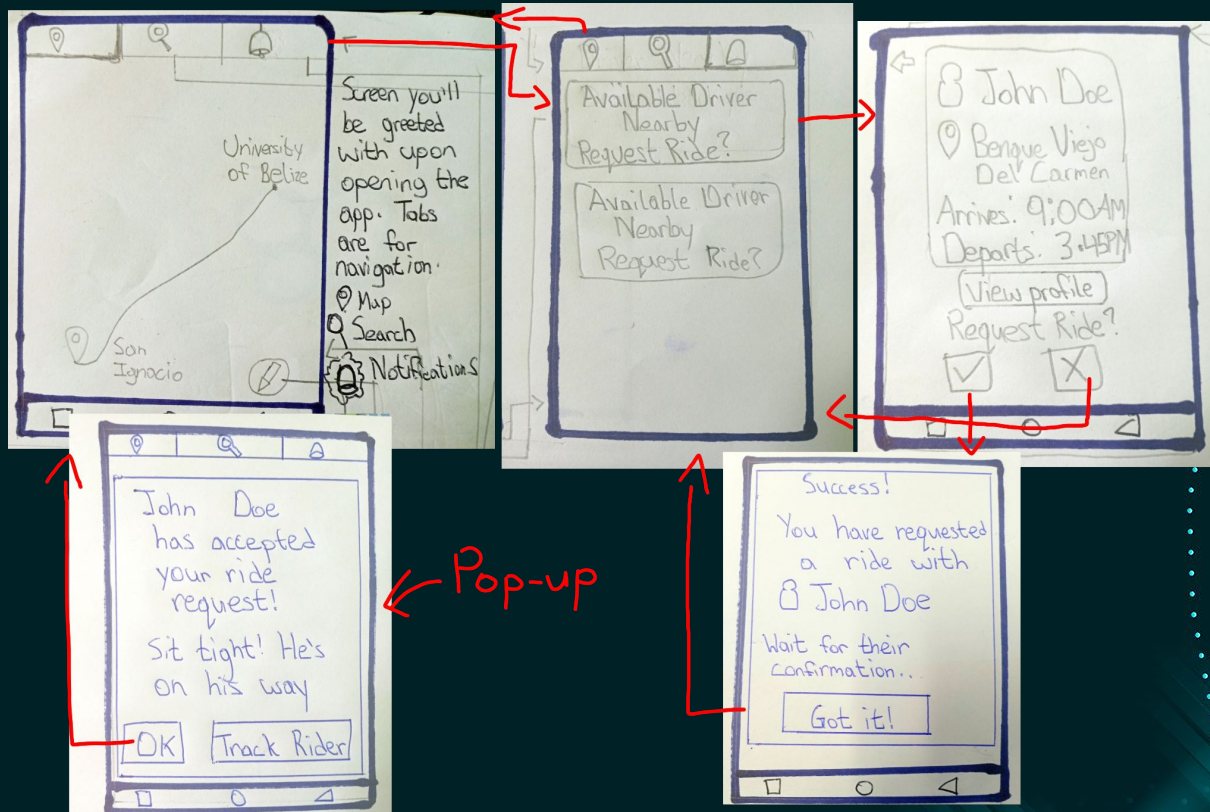 University
of Belize
San
Ignocio
Screen you'll
be greeted
with upon
opening the
app. Tabs
are for
navigation.
Map
Search
Notifications
Available Driver
Nearby
Request Ride?
Available Driver
Nearby
Request Ride?
John Doe
Benque Viejo
Del Carmen
Arrives: 9:00AM
Departs: 3:45PM
View profile
Request Ride?
John Doe
has accepted
your ride
request!
Sit tight! He's
on his way
OK
Track Rider
Pop-up
Success!
You have requested
a ride with
John Doe
Wait for their
confirmation...
Got it!